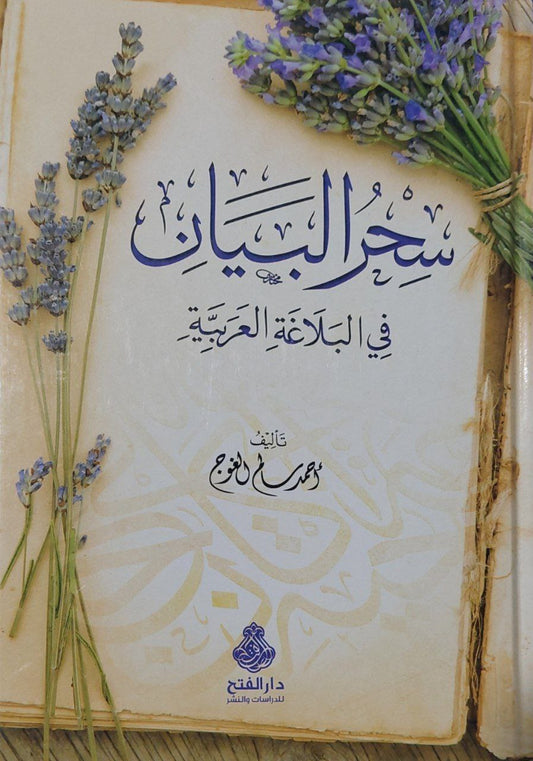 سِحْرُ البَيَانِ
فِي البَلَاغَةِ العَرَبِيَّةِ
تَأليفُ
أحمد سالم الغوج
دار الفتح
للدراسات والنشر